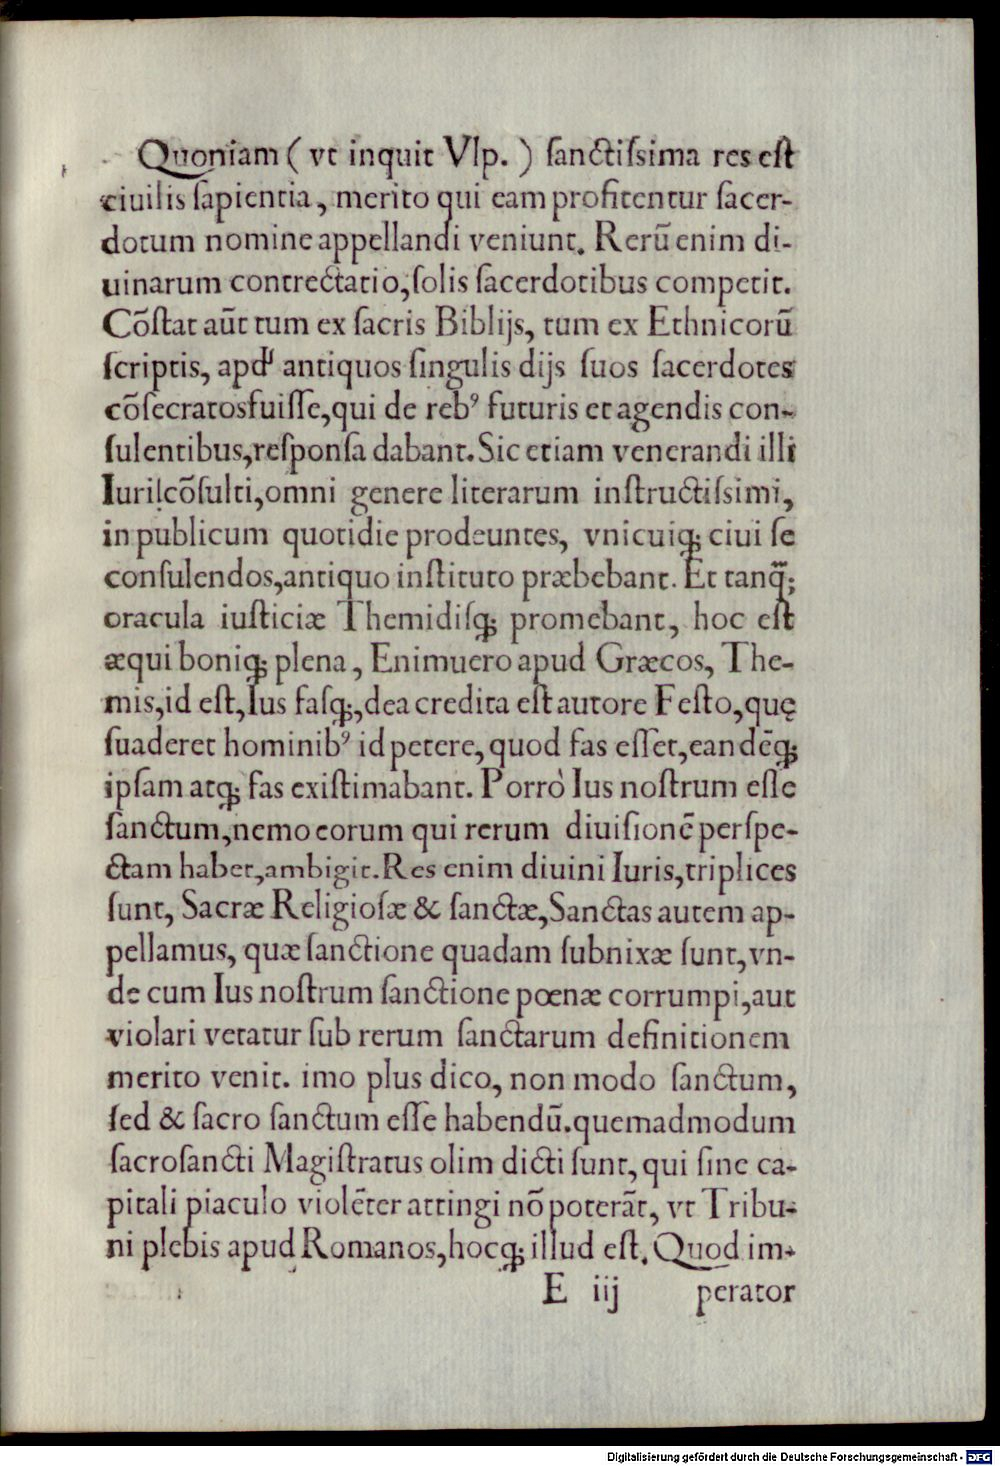 Quoniam ( vt inquit Vlp. ) ſanctiſsima res eſt
ciuilis ſapientia, merito qui eam profitentur ſacer-
dotum nomine appellandi veniunt. Rerũ enim di-
uinarum contrectatio, ſolis ſacerdotibus competit.
Cõſtat aũt tum ex ſacris Biblijs, tum ex Ethnicorũ
ſcriptis, apđ antiquos ſingulis dijs ſuos ſacerdotes
cõſecratos fuiſſe, qui de rebꝰ futuris et agendis con-
ſulentibus, reſponſa dabant. Sic etiam venerandi illi
Iuriſcõſulti, omni genere literarum inſtructiſsimi,
in publicum quotidie prodeuntes, vnicuiq; ciui ſe
conſulendos, antiquo inſtituto præbebant. Et tanq̃;
oracula iuſticiæ Themidiſq; promebant, hoc eſt
æqui boniq; plena, Enimuero apud Græcos, The-
mis, id eſt, Ius faſq;, dea credita eſt autore Feſto, quę
ſuaderet hominibꝰ id petere, quod fas eſſet, eandẽq;
ipſam atq; fas exiſtimabant. Porrò Ius noſtrum eſſe
ſanctum, nemo eorum qui rerum diuiſionẽ perſpe-
ctam habet, ambigit. Res enim diuini Iuris, triplices
ſunt, Sacræ Religioſæ & ſanctæ, Sanctas autem ap-
pellamus, quæ ſanctione quadam ſubnixæ ſunt, vn-
de cum Ius noſtrum ſanctione pœnæ corrumpi, aut
violari vetatur ſub rerum ſanctarum definitionem
merito venit. imo plus dico, non modo ſanctum,
ſed & ſacro ſanctum eſſe habendũ. quemadmodum
ſacroſancti Magiſtratus olim dicti ſunt, qui ſine ca-
pitali piaculo violẽter attingi nõ poterãt, vt Tribu-
ni plebis apud Romanos, hocq; illud eſt. Quod im-
E iij perator
Digitalisierung gefördert durch die Deutsche Forschungsgemeinschaft - DFG